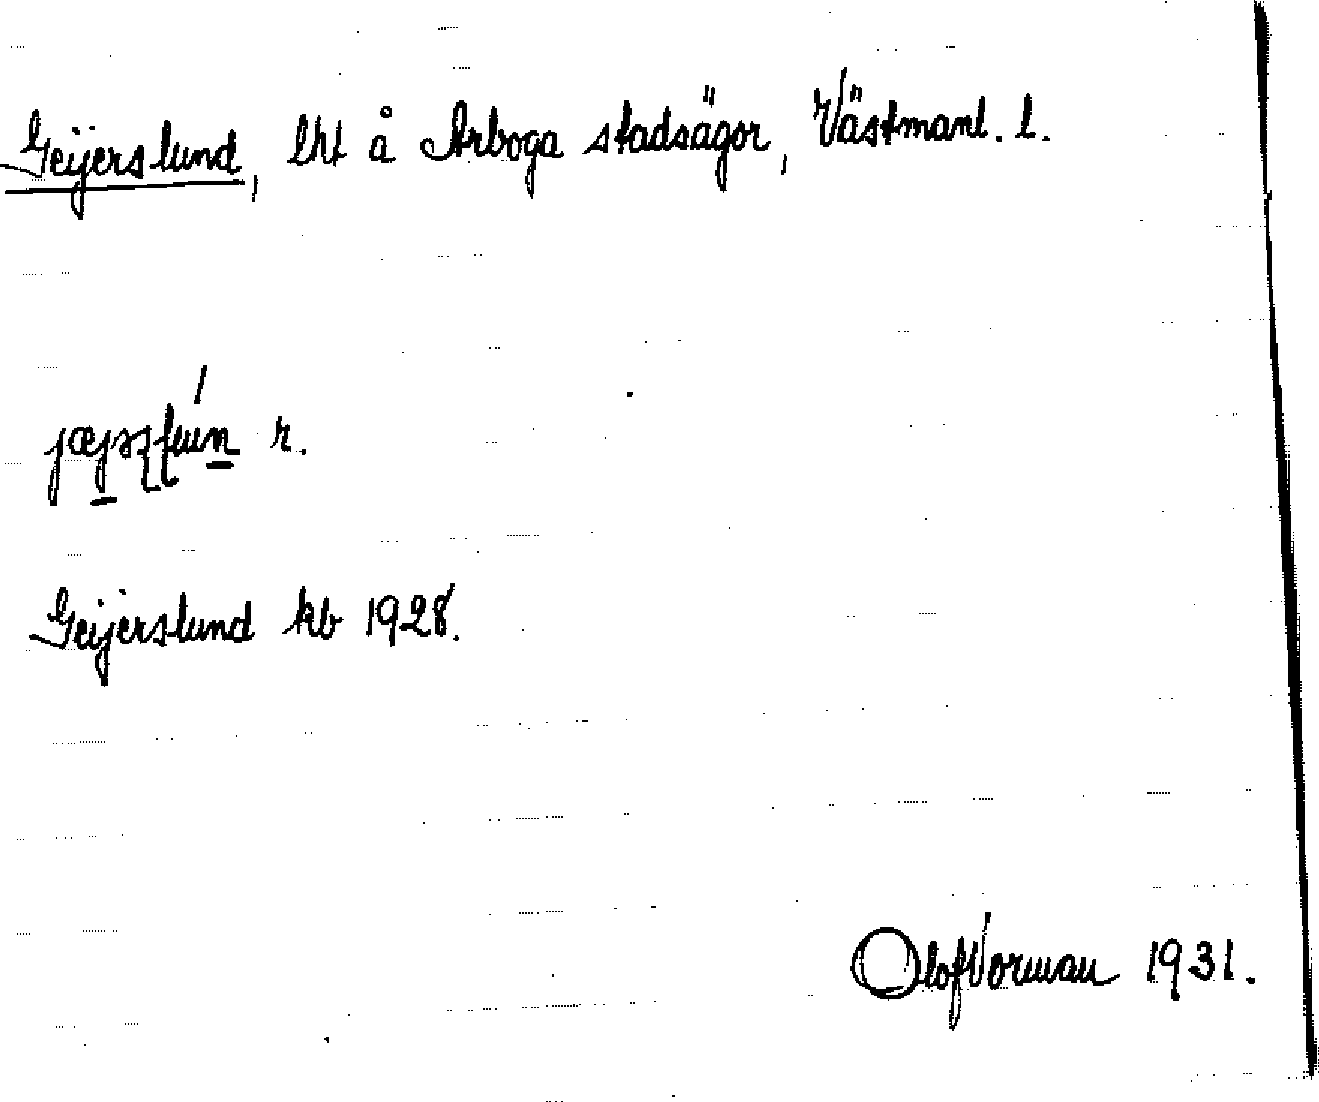 Geijerslund, lht å Arboga stadsägor, Västmanl. l.
r.
Geijerslund kb 1928.
Olof Vorman 1931.